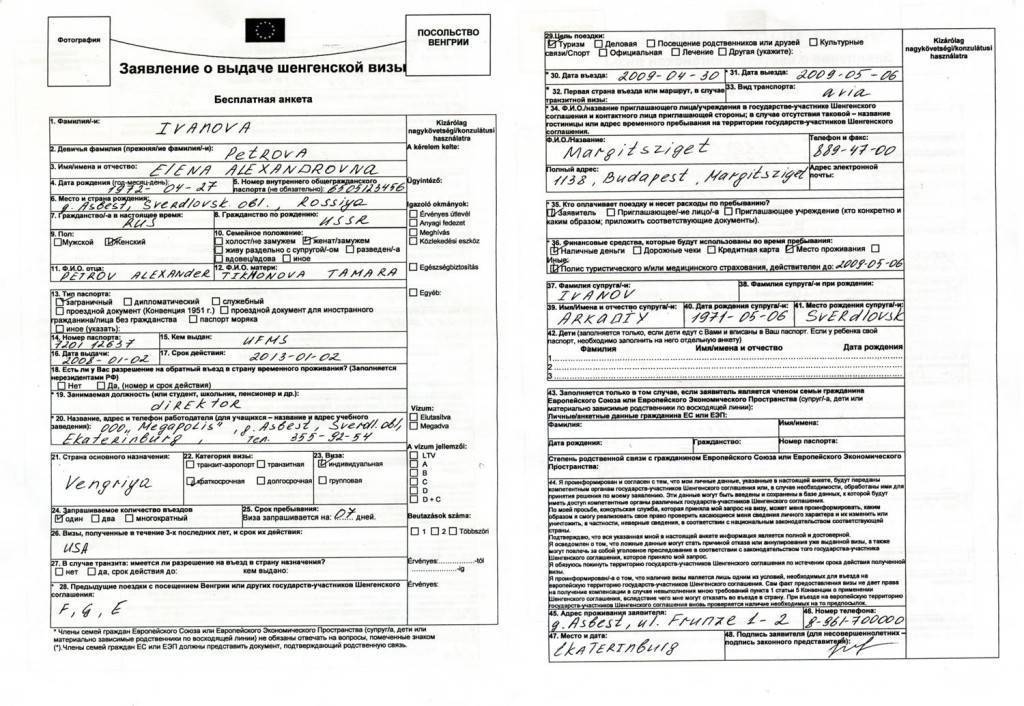 Фотография
ПОСОЛЬСТВО
ВЕНГРИИ
Заявление о выдаче шенгенской визы
Бесплатная анкета
Kizárólag
nagykövetségi/konzulátusi
használatra
A kérelem kelte:
Ügyintéző:
Igazoló okmányok:
Érvényes útlevél
Anyagi fedezet
Meghívás
Közlekedési eszköz
Egészségbiztosítás
Egyéb:
Vízum:
Elutasítva
Megadva
A vízum jellemzői:
LTV
A
B
C
D
D + C
Beutazások száma:
1 2 Többszöri
Érvényes: -tól
-ig
Érvényes:
1. Фамилия/-и: IVANOVA
2. Девичья фамилия (прежняя/ие фамилия/-и): PETROVA
3. Имя/имена и отчество: ELENA ALEXANDROVNA
4. Дата рождения (год-месяц-день): 1972-04-27
5. Номер внутреннего общегражданского
паспорта (не обязательно): 6505123456
6. Место и страна рождения:
g. Asbest, Sverdlovsk. obl., Rossiya
7. Гражданство/-а в настоящее время: RUS
8. Гражданство по рождению: USSR
9. Пол:
Мужской Женский
10. Семейное положение:
холост/не замужем женат/замужем
живу раздельно с супругой/-ом разведен/-а
вдовец/вдова иное
11. Ф.И.О. отца: PETROV ALEXANDER
12. Ф.И.О. матери: TIKHONOVA TAMARA
13. Тип паспорта:
заграничный дипломатический служебный
проездной документ (Конвенция 1951 г.) проездной документ для иностранного
гражданина/лица без гражданства паспорт моряка
иное (указать):
14. Номер паспорта: 7201 12637
15. Кем выдан: UFMS
16. Дата выдачи: 2008-01-02
17. Срок действия: 2013-01-02
18. Есть ли у Вас разрешение на обратный въезд в страну временного проживания? (Заполняется
нерезидентами РФ)
Нет Да, (номер и срок действия)
* 19. Занимаемая должность (или студент, школьник, пенсионер и др.):
direktor
* 20. Название, адрес и телефон работодателя (для учащихся – название и адрес учебного
заведения): ООО „Megapolis", g. Asbest, Sverdl.obl,
Ekaterinburg, тел. 355-92-54
21. Страна основного назначения:
Vengriya
22. Категория визы:
транзит-аэропорт транзитная
краткосрочная долгосрочная
23. Виза:
индивидуальная
групповая
24. Запрашиваемое количество въездов
один два многократный
25. Срок пребывания:
Виза запрашивается на: 07 дней.
26. Визы, полученные в течение 3-х последних лет, и срок их действия:
USA
27. В случае транзита: имеется ли разрешение на въезд в страну назначения?
нет да, срок действия до: кем выдано:
* 28. Предыдущие поездки с посещением Венгрии или других государств-участников Шенгенского
соглашения:
F, g, E
* Члены семей граждан Европейского Союза или Европейского Экономического Пространства (супруг/а, дети или
материально зависимые родственники по восходящей линии) не обязаны отвечать на вопросы, помеченные знаком
(*).Члены семей граждан ЕС или ЕЭП должны представить документ, подтверждающий родственную связь.
29.Цель поездки:
Туризм Деловая Посещение родственников или друзей Культурные
связи/Спорт Официальная Лечение Другая (укажите):
Kizárólag
nagykövetségi/konzulátusi
használatra
* 30. Дата въезда: 2009-04-30
* 31. Дата выезда: 2009-05-06
* 32. Первая страна въезда или маршрут, в случае
транзитной визы:
33. Вид транспорта:
avia
* 34. Ф.И.О./название приглашающего лица/учреждения в государстве-участнике Шенгенского
соглашения и контактного лица приглашающей стороны; в случае отсутствия таковой – название
гостиницы или адрес временного пребывания на территории государств-участников Шенгенского
соглашения.
Ф.И.О./Название:
Margitsziget
Телефон и факс:
889-47-00
Полный адрес:
1138, Budapest, Margitsziget
Адрес электронной
почты:
* 35. Кто оплачивает поездку и несет расходы по пребыванию?
Заявитель Приглашающее/-ие лицо/-а Приглашающее учреждение (кто конкретно и
каким образом; приложить соответствующие документы).
* 36. Финансовые средства, которые будут использованы во время пребывания:
Наличные деньги Дорожные чеки Кредитная карта Место проживания
Иные:
Полис туристического и/или медицинского страхования, действителен до: 2009-05-06
37. Фамилия супруга/-и:
IVANOV
38. Фамилия супруга/-и при рождении:
39. Имя/Имена и отчество супруга/-и:
ARKADIY
40. Дата рождения супруга/-и:
1971-05-06
41. Место рождения супруга/-и:
SVERDLOVSK
42. Дети (заполняется только, если дети едут с Вами и вписаны в Ваш паспорт. Если у ребенка свой
паспорт, необходимо заполнить на него отдельную анкету)
Фамилия Имя/имена и отчество Дата рождения
1
2
3
43. Заполняется только в том случае, если заявитель является членом семьи гражданина
Европейского Союза или Европейского Экономического Пространства (супруг/-а, дети или
материально зависимые родственники по восходящей линии):
Личные/анкетные данные гражданина ЕС или ЕЭП:
Фамилия: Имя/имена:
Дата рождения: Гражданство: Номер паспорта:
Степень родственной связи с гражданином Европейского Союза или Европейского Экономического
Пространства:
44. Я проинформирован и согласен с тем, что мои личные данные, указанные в настоящей анкете, будут переданы
компетентным органам государств-участников Шенгенского соглашения или, в случае необходимости, обработаны ими для
принятия решения по моему заявлению. Эти данные могут быть введены и сохранены в базе данных, к которой будут
иметь доступ компетентные органы различных государств-участников Шенгенского соглашения.
По моей просьбе, консульская служба, которая приняла мой запрос на визу, может меня проинформировать, каким
образом я смогу реализовать свое право проверить касающиеся меня сведения личного характера и их изменить или
уничтожить, в частности, неверные сведения, в соответствии с национальным законодательством соответствующей
страны.
Подтверждаю, что вся указанная мной в настоящей анкете информация является полной и достоверной.
Я осведомлен о том, что ложные данные могут стать причиной отказа или аннулирования уже выданной визы, а также
могут повлечь за собой уголовное преследование в соответствии с законодательством того государства-участника
Шенгенского соглашения, которое приняло мой запрос.
Я обязуюсь покинуть территорию государств-участников Шенгенского соглашения по истечении срока действия полученной
визы.
Я проинформирован/-а о том, что наличие визы является лишь одним из условий, необходимых для въезда на
европейскую территорию государств-участников Шенгенского соглашения. Сам факт предоставления визы не дает права
на получение компенсации в случае невыполнения мною требований пункта 1 статьи 5 Конвенции о применении
Шенгенского соглашения, вследствие чего мне могут отказать во въезде в страну. При въезде на европейскую территорию
государств-участников Шенгенского соглашения вновь проверяется наличие необходимых на то предпосылок.
45. Адрес проживания заявителя:
g. Asbest, ul. Frunze 1-2
46. Номер телефона:
8-961-700000
47. Место и дата:
EKATERINBURG
48. Подпись заявителя (для несовершеннолетних –
подпись законного представителя):